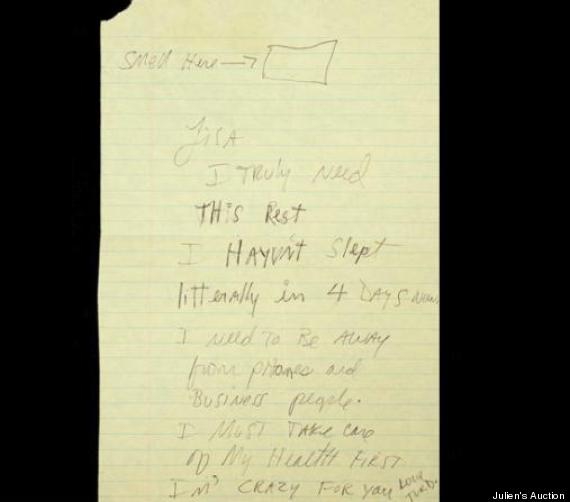 Smell Here →
Lisa
I Truly Need
THis Rest
I HAVN't Slept
litterally in 4 DAYS now
I need To Be AWAY
from pHones and
Business people.
I MUST TAKE care
of My HealtH FIRST
I'M CRAZY FOR you
Love
TURD.
Julien's Auction